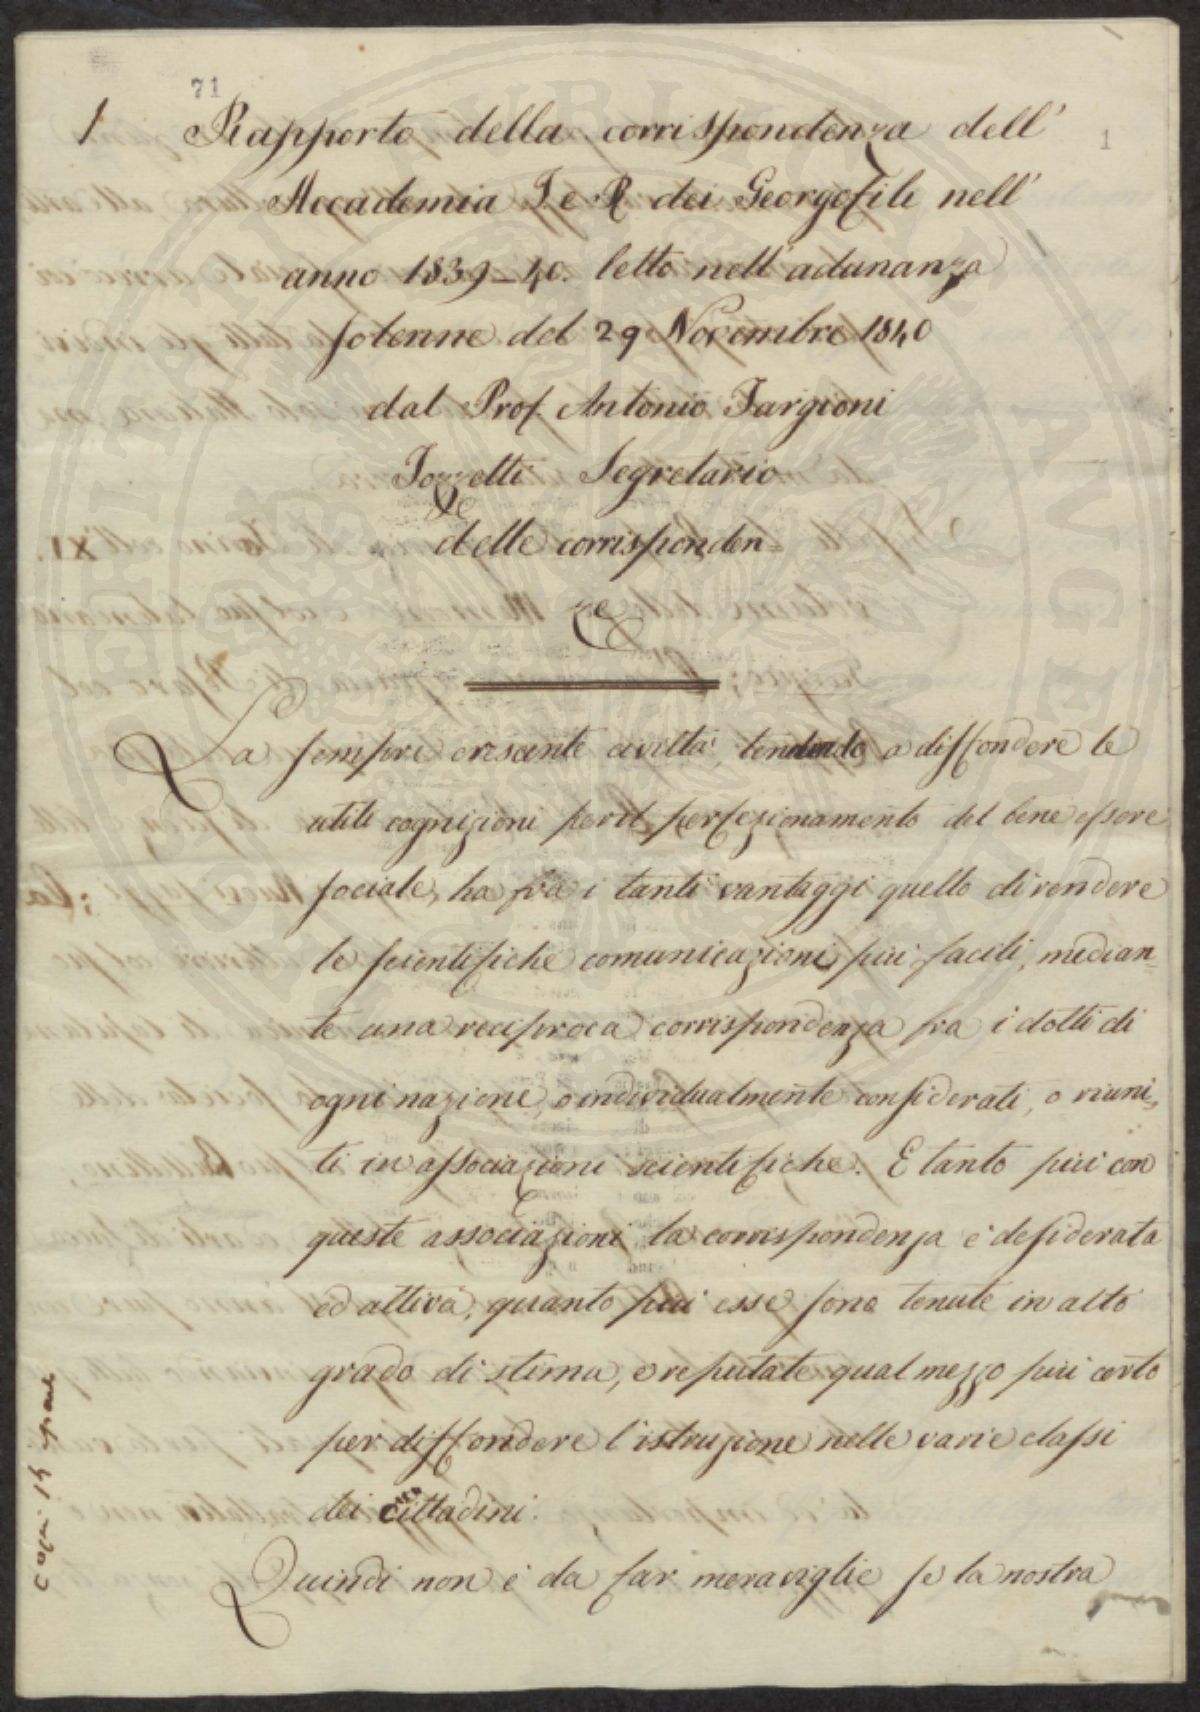 71
1 Rapporto della corrispondenza dell'
1
Accademia I e R dei Georgofili nell'
anno 1839_40. letto nell'adunanza
solenne del 29 Novembre 1840
dal Prof. Antonio Targioni
Tozzetti Segretario
delle corrisponden=
ze
La sempre crescente civiltà, tendendo a diffondere le
utili cognizioni peril perfezionamento del bene essere
sociale, ha fra i tanti vantaggi quello di rendere
le scientifiche comunicazioni più facili, median=
te una reciproca corrispondenza fra i dotti di
ogni nazione, o individualmente considerati, o riuni=
ti in associazioni scientifiche. E tanto più con
queste associazioni la corrispondenza è desiderata
ed attiva, quanto più esse sono tenute in alto
grado di stima, e reputate qual mezzo più certo
per diffondere l'istruzione nelle varie classi
dei cittadini.
Quindi non è da far meraviglie se la nostra